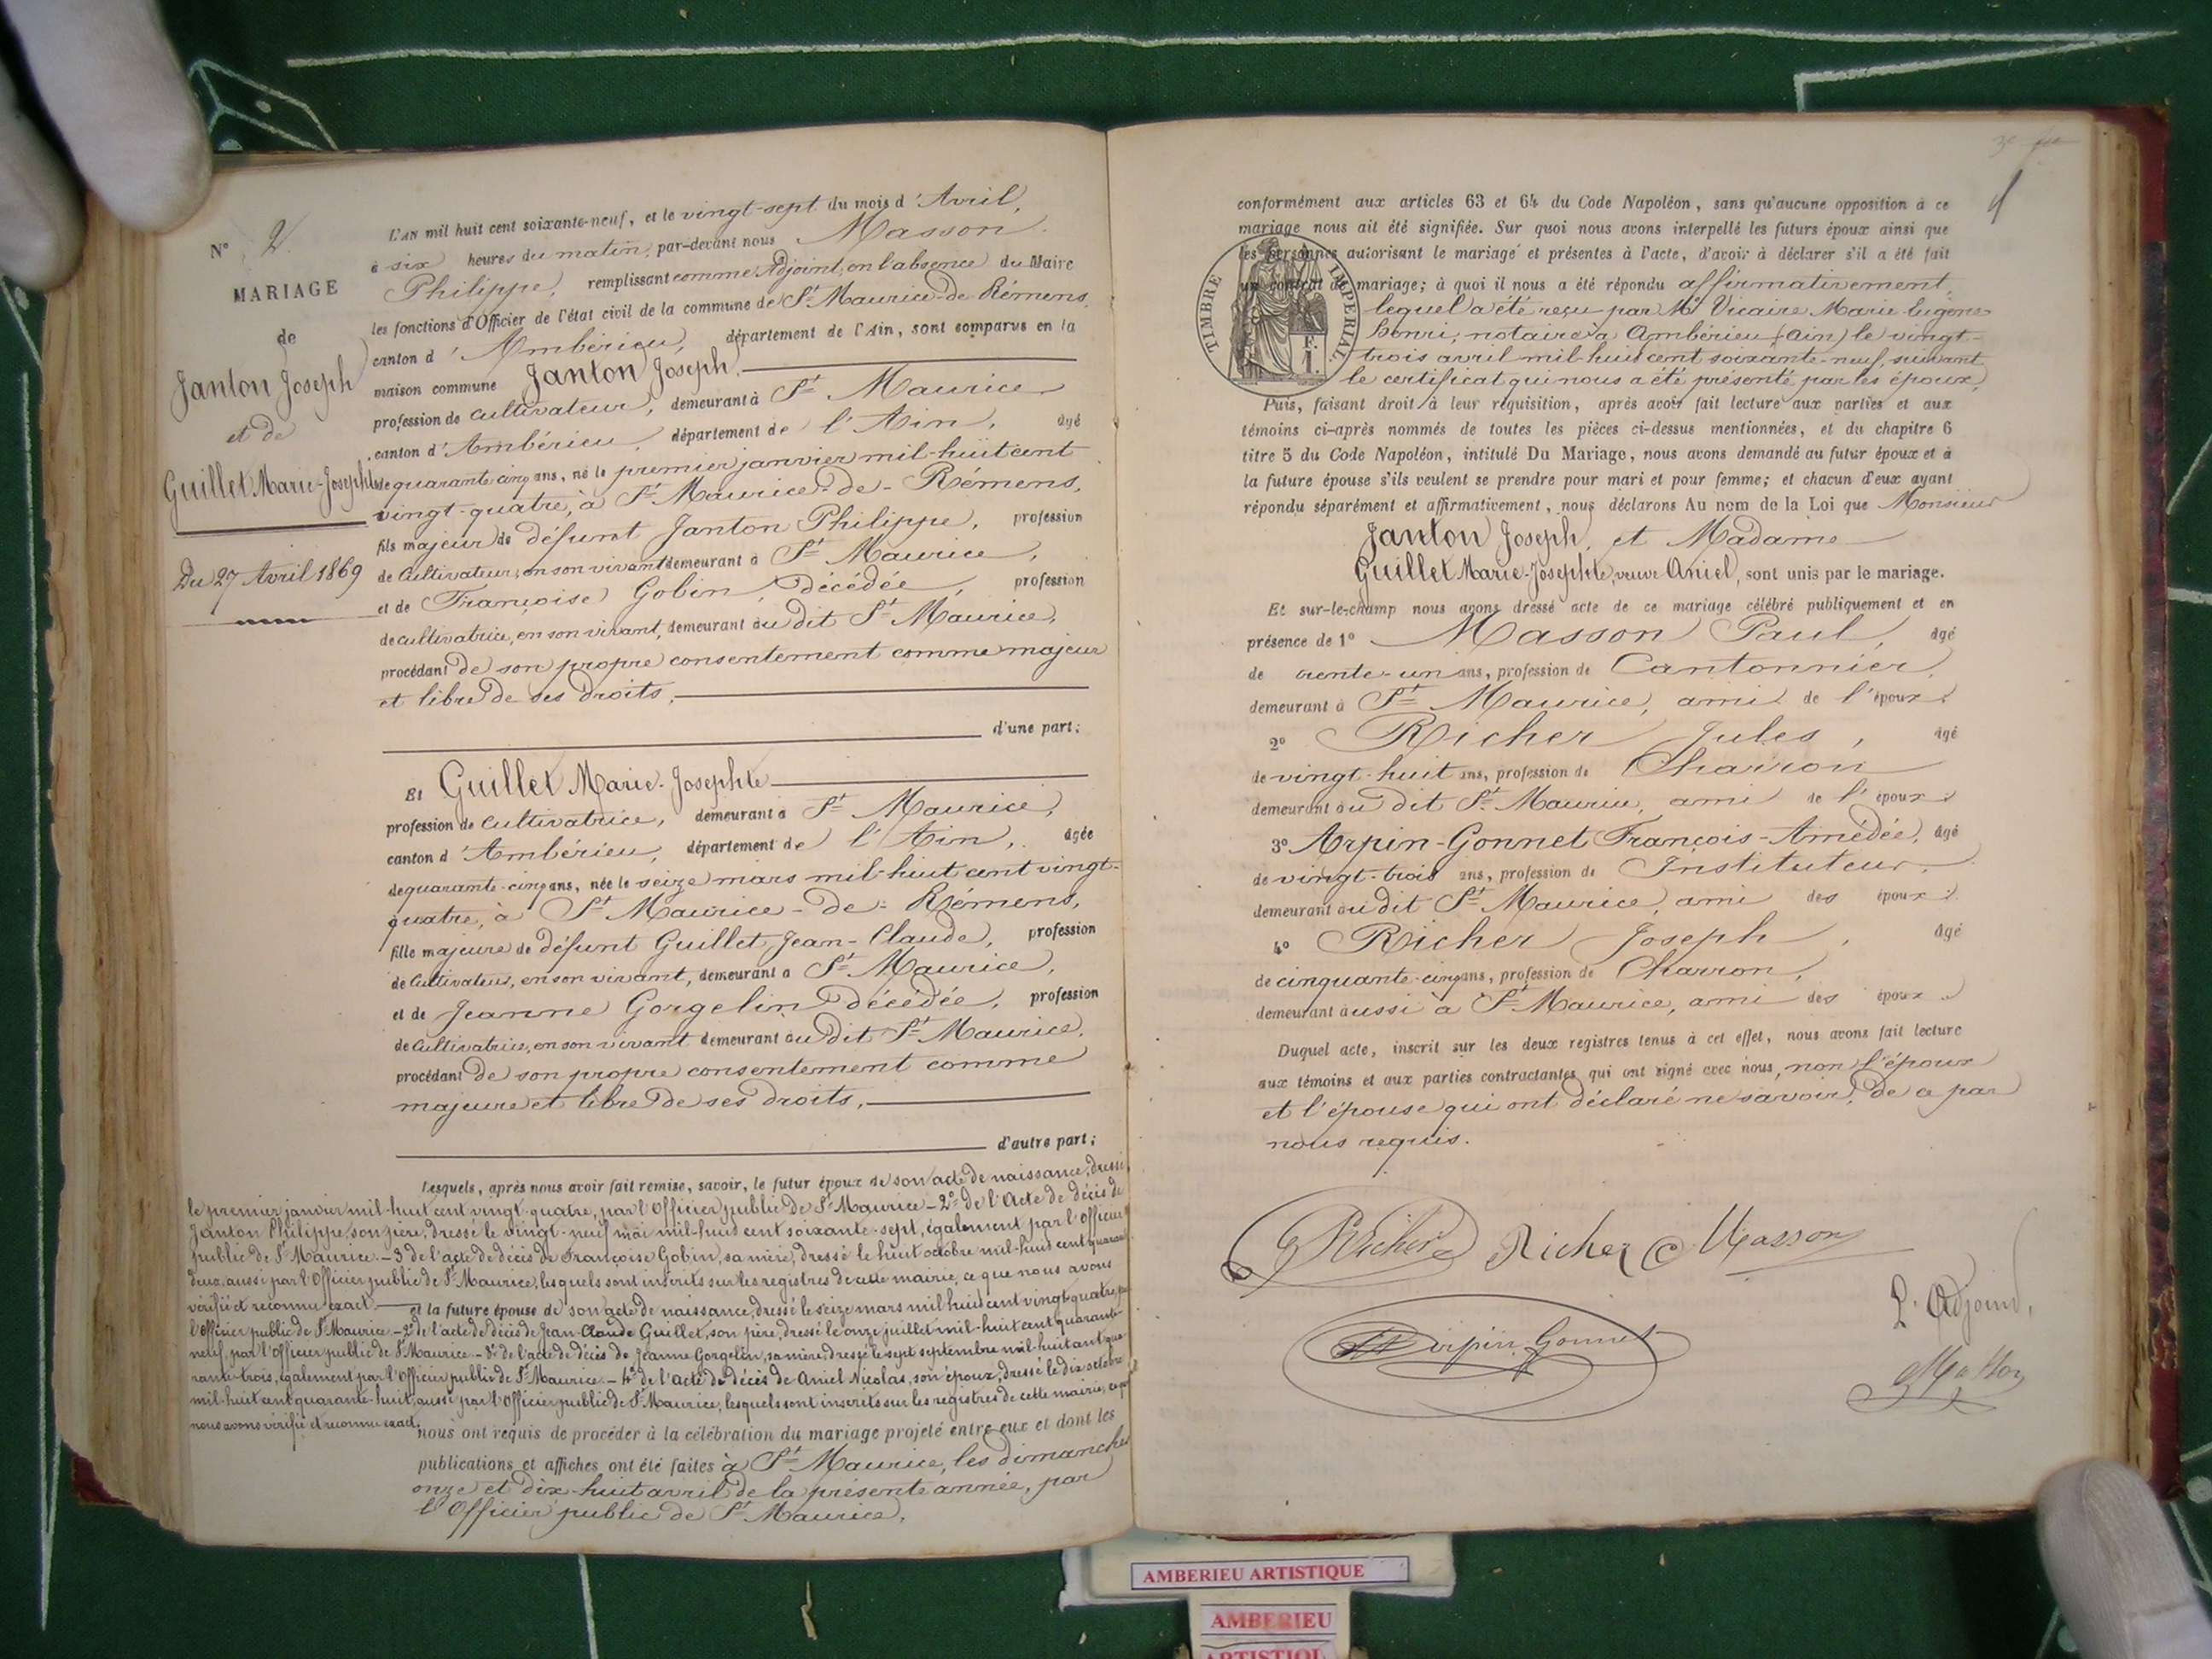 N° 2.
MARIAGE
de
Janton Joseph
et de
Guillet Marie-Josephte
Du 27 Avril 1869
L'AN mil huit cent soixante-neuf, et le vingt-sept du mois d'Avril,
à six heures du matin, par-devant nous Masson
Philippe, remplissant comme Adjoint, en l'absence du Maire
les fonctions d'Officier de l'état civil de la commune de St Maurice-de-Rémens,
canton d'Ambérieu, département de l'Ain, sont comparus en la
maison commune Janton Joseph,
profession de cultivateur, demeurant à St Maurice
canton d'Ambérieu, département de l'Ain, âgé
de quarante-cinq ans, né le premier janvier mil-huit cent
vingt-quatre, à St Maurice-de-Rémens,
fils majeur de défunt Janton Philippe, profession
de Cultivateur, en son vivant demeurant à St Maurice,
et de Françoise Gobin, décédée, profession
de cultivatrice, en son vivant, demeurant au dit St Maurice,
procédant de son propre consentement comme majeur
et libre de ses droits,
d'une part;
Et Guillet Marie-Josephte
profession de cultivatrice, demeurant à St Maurice,
canton d'Ambérieu, département de l'Ain, âgée
de quarante-cinq ans, née le seize mars mil-huit cent vingt-
quatre, à St Maurice-de-Rémens,
fille majeure de défunt Guillet Jean-Claude, profession
de Cultivateur, en son vivant, demeurant à St Maurice,
et de Jeanne Gorgelin décédée, profession
de Cultivatrice, en son vivant demeurant au dit St Maurice,
procédant de son propre consentement comme
majeure et libre de ses droits,
d'autre part;
Lesquels, après nous avoir fait remise, savoir, le futur époux de son acte de naissance, dressé
le premier janvier mil-huit cent vingt-quatre, par l'Officier public de St Maurice - 2° de l'Acte de décès de
Janton Philippe, son père, dressé le vingt-neuf mai mil-huit cent soixante-sept, également par l'Officier
public de St Maurice. - 3 de l'acte de décès de Françoise Gobin, sa mère, dressé le huit octobre mil-huit cent quarante
deux, aussi par l'Officier public de St Maurice, lesquels sont inscrits sur les registres de cette mairie, ce que nous avons
vérifié et reconnu exact. — et la future épouse de son acte de naissance, dressé le seize mars mil huit cent vingt-quatre, par
l'Officier public de St Maurice - 2° de l'acte de décès de Jean Claude Guillet, son père, dressé le onze juillet mil-huit cent quarante
neuf, par l'Officier public de St Maurice. - 3° de l'acte de décès de Jeanne Gorgelin, sa mère, dressé le sept septembre mil-huit cent qua-
rante-trois, également par l'Officier public de St Maurice. - 4° de l'acte de décès de Aniel Nicolas, son époux, dressé le dix octobre
mil-huit cent quarante-huit, aussi par l'Officier public de St Maurice, lesquels sont inscrits sur les registres de cette mairie, ce que
nous avons vérifié et reconnu exact.
nous ont requis de procéder à la célébration du mariage projeté entre eux et dont les
publications et affiches ont été faites à St Maurice, les dimanches
onze et dix-huit avril de la présente année, par
l'Officier public de St Maurice,
conformément aux articles 63 et 64 du Code Napoléon, sans qu'aucune opposition à ce
mariage nous ait été signifiée. Sur quoi nous avons interpellé les futurs époux ainsi que
les personnes autorisant le mariage et présentes à l'acte, d'avoir à déclarer s'il a été fait
un contrat de mariage; à quoi il nous a été répondu affirmativement,
lequel a été reçu par Me Vicaire Marie Eugène
henri, notaire à Ambérieu (Ain) le vingt-
trois avril mil-huit cent soixante-neuf, suivant
le certificat qui nous a été présenté par les époux,
TIMBRE IMPERIAL
Puis, faisant droit à leur réquisition, après avoir fait lecture aux parties et aux
témoins ci-après nommés de toutes les pièces ci-dessus mentionnées, et du chapitre 6
titre 5 du Code Napoléon, intitulé Du Mariage, nous avons demandé au futur époux et à
la future épouse s'ils veulent se prendre pour mari et pour femme; et chacun d'eux ayant
répondu séparément et affirmativement, nous déclarons Au nom de la Loi que Monsieur
Janton Joseph, et Madame
Guillet Marie-Josephte, veuve Aniel, sont unis par le mariage.
Et sur-le-champ nous avons dressé acte de ce mariage célébré publiquement et en
présence de 1° Masson Paul, âgé
de trente-un ans, profession de Cantonnier,
demeurant à St Maurice, ami de l'époux.
2° Richer Jules, âgé
de vingt-huit ans, profession de Charron
demeurant au dit St Maurice, ami de l'époux.
3° Arpin-Gonnet François-Amédée, âgé
de vingt-trois ans, profession de Instituteur
demeurant au dit St Maurice, ami des époux.
4° Richer Joseph, âgé
de cinquante-cinq ans, profession de Charron,
demeurant aussi à St Maurice, ami des époux.
Duquel acte, inscrit sur les deux registres tenus à cet effet, nous avons fait lecture
aux témoins et aux parties contractantes qui ont signé avec nous, non l'époux
et l'épouse qui ont déclaré ne savoir, de ce par
nous requis.
Richer Richer Masson
L'Adjoint,
Arpin Gonnet
Masson
AMBERIEU ARTISTIQUE
AMBERIEU
ARTISTIQUE